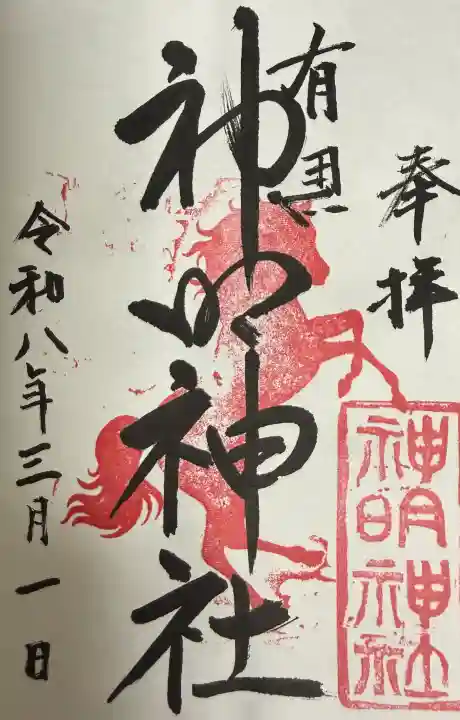 奉拝
有
神明神社
令和八年三月一日
神明神社